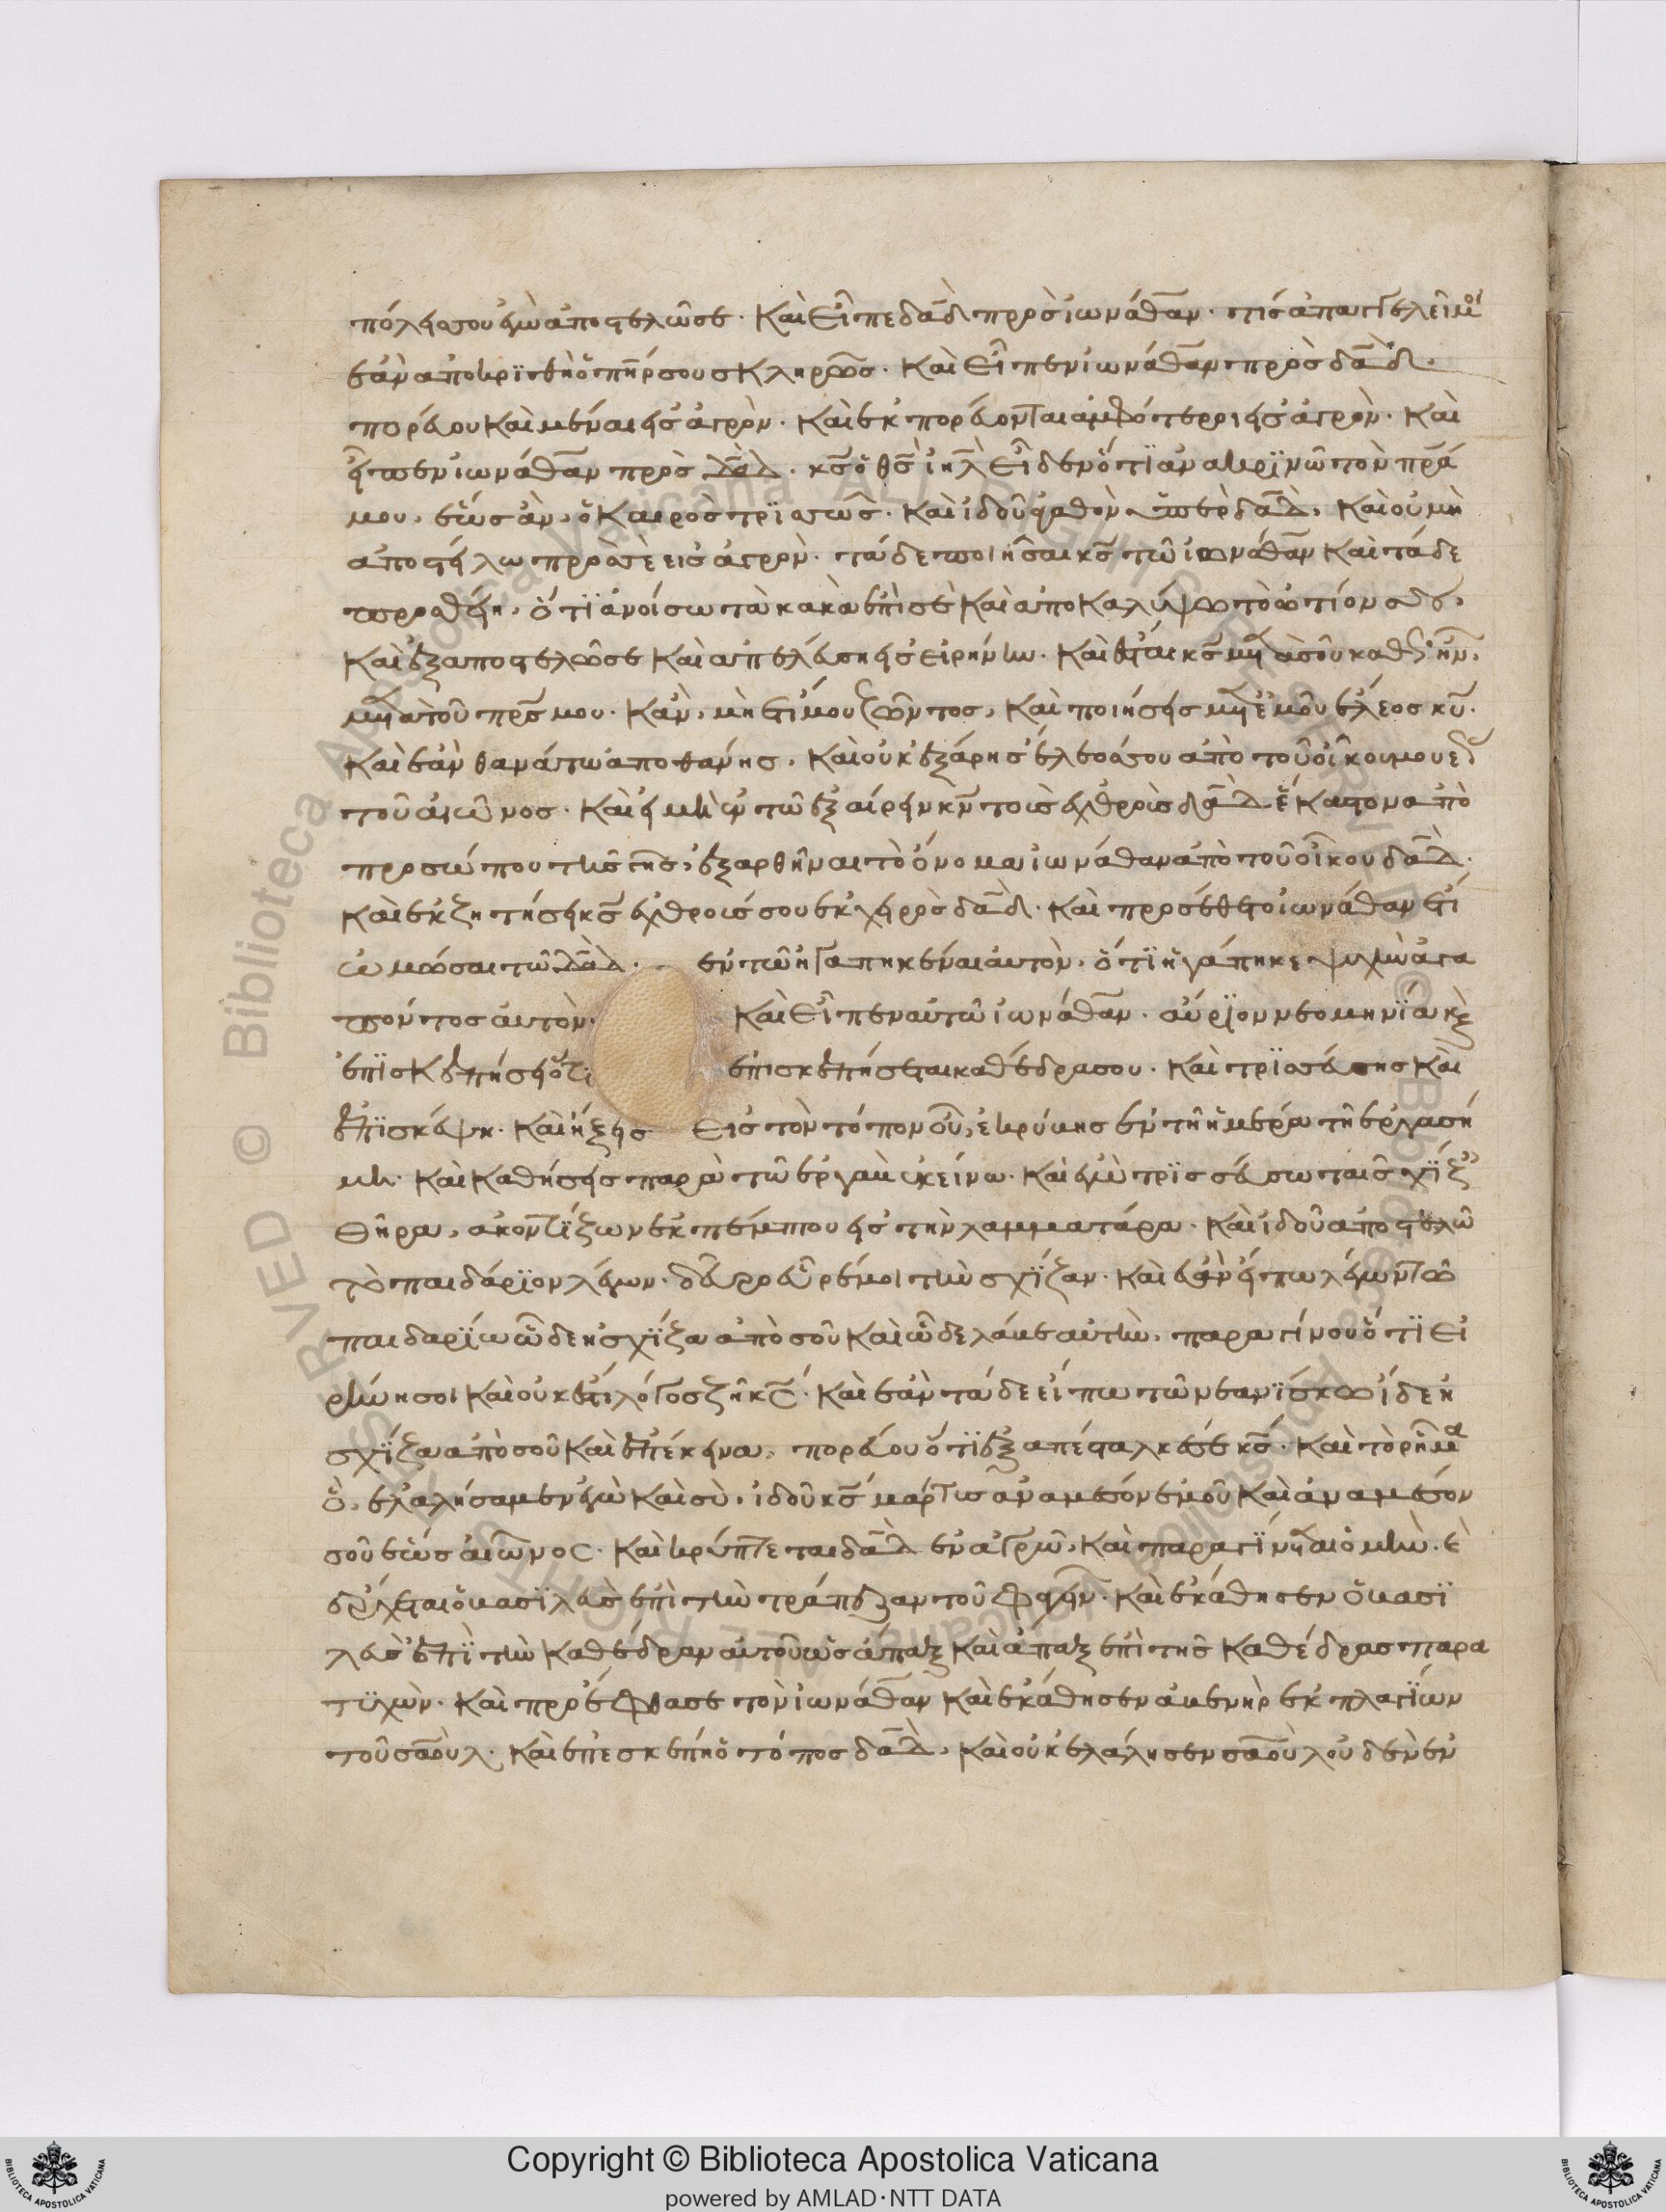 πόλεις σου ἐγὼ ἀποστελῶ σε. Καὶ εἶπε δα̅δ̅ πρὸς ἰωνάθαν. τίς ἀπαγγελεῖ μοι
ἐὰν ἀποκριθῆ ὁ π̅η̅ρ σου σκληρῶς. Καὶ εἶπεν ἰωνάθαν πρὸς δα̅δ̅.
πορεύου καὶ μένε εἰς ἀγρὸν. Καὶ ἐκπορεύονται ἀμφότεροι εἰς ἀγρὸν. Καὶ
εἶπεν ἰωνάθαν πρὸς δα̅δ̅. κ̅ς̅ ὁ θ̅ς̅ ι̅η̅λ̅ εἶδεν ὅτι ἀνακρινῶ τὸν π̅ρ̅α
μου, ἕως ἂν, ὁ καιρὸς τρισσῶς. Καὶ ἰδοῦ ἀγαθὸν ὑπὲρ δα̅δ̅, Καὶ οὐ μὴ
ἀποστείλω πρὸς σὲ εἰς ἀγρὸν. τάδε ποιήσαι κ̅ς̅ τῶ ἰωνάθαν καὶ τάδε
προσθείη, ὅτι ἀνοίσω τὰ κακὰ ἐπὶ σὲ Καὶ ἀποκαλύψω τὸ ὠτίον σου,
Καὶ ἐξαποστελῶ σε Καὶ ἀπελεύση εἰς εἰρήνην. Καὶ ἔσται κ̅ς̅ μετὰ σοῦ καθὼς ἦν,
μετὰ τοῦ π̅ρ̅ς̅ μου. Κἀν, μὴ ἔτι μου ζῶντος, Καὶ ποιήσεις μετ' ἐμοῦ ἔλεος κ̅υ̅.
Καὶ ἐὰν θανάτω ἀποθάνης, Καὶ οὐκ ἐξάρης ἔλεός σου ἀπὸ τοῦ οἴκου μου ἕως
τοῦ αἰῶνος. Καὶ εἰ μὴ ἐν τῶ ἐξαίρειν κ̅ν̅ τοὺς ἐχθροὺς δα̅δ̅ ἕκαστον ἀπὸ
προσώπου τῆς γῆς, ἐξαρθῆναι τὸ ὄνομα ἰωνάθαν ἀπὸ τοῦ οἴκου δα̅δ̅.
Καὶ ἐκζητήσει κ̅ς̅ ἐχθρούς σου ἐκ χειρὸς δα̅δ̅. Καὶ προσέθετο ἰωνάθαν ἔτι
ὠμόσαι τῶ δα̅δ̅. ἐν τῶ ἠγαπηκέναι αὐτὸν, ὅτι ἠγάπηκε ψυχὴν ἀγα
πῶντος αὐτὸν. Καὶ εἶπεν αὐτῶ ἰωνάθαν. αὔριον νεομηνία κὲ
ἐπισκεπήσει ὅτι ἐπισκεπήσεται καθέδρα σου. Καὶ τρισσεύσης Καὶ
ἐπισκέψη. Καὶ ἥξεις εἰς τὸν τόπον οὗ, ἐκρύβης ἐν τῆ ἡμέρα τῆ ἐργασί
μη. Καὶ καθήσεις παρὰ τῶ ἐργαβ ἐκείνω. Καὶ ἐγὼ τρισσεύσω ταῖς σχίζ
θηρα, ἀκοντίζων ἐκπέμπου εἰς τὴν λαμματάρα. Καὶ ἰδοῦ ἀποστελῶ
τὸ παιδάριον λέγων. δεῦρο εὗρέ μοι τὴν σχίζαν. Καὶ ἐὰν εἴπω λέγων τῶ
παιδαρίω ὧδε ἡ σχίζα ἀπὸ σοῦ Καὶ ὧδε λάβε αὐτὴν, παραγίνου ὅτι εἰ
ρήνη σοι Καὶ οὐκ ἔστι λόγος ζῆ κ̅ς̅. Καὶ ἐὰν τάδε εἴπω τῶ νεανίσκω ἴδε ἡ
σχίζα ἀπὸ σοῦ Καὶ ἐπέκεινα, πορεύου ὅτι ἐξαπέσταλκέ σε κ̅ς̅. Καὶ τὸ ῥῆμα
ὃ, ἐλαλήσαμεν ἐγὼ Καὶ σὺ, ἰδοῦ κ̅ς̅ μάρτυς ἀναμέσον ἐμοῦ Καὶ ἀναμέσον
σοῦ ἕως αἰῶνος. Καὶ κρύπτεται δα̅δ̅ ἐν ἀγρῶ, Καὶ παραγίνεται ὁ μὴν. ὲ
ἔρχεται ὁ βασιλεὺς ἐπὶ τὴν τράπεζαν τοῦ φαγεῖν. Καὶ ἐκάθησεν ὁ βασι
λεὺς ἐπὶ τὴν καθέδραν αὐτοῦ ὡς ἅπαξ Καὶ ἅπαξ ἐπὶ τῆς καθέδρας παρα
τῦχὼν. Καὶ προέφθασε τὸν ἰωνάθαν Καὶ ἐκάθησεν ἀβενὴρ ἐκ πλαγίων
τοῦ σαοὺλ. Καὶ ἐπεσκέπη ὁ τόπος δα̅δ̅, Καὶ οὐκ ἐλάλησεν σαοὺλ οὐδὲν ἐν
Copyright © Biblioteca Apostolica Vaticana
powered by AMLAD·NTT DATA